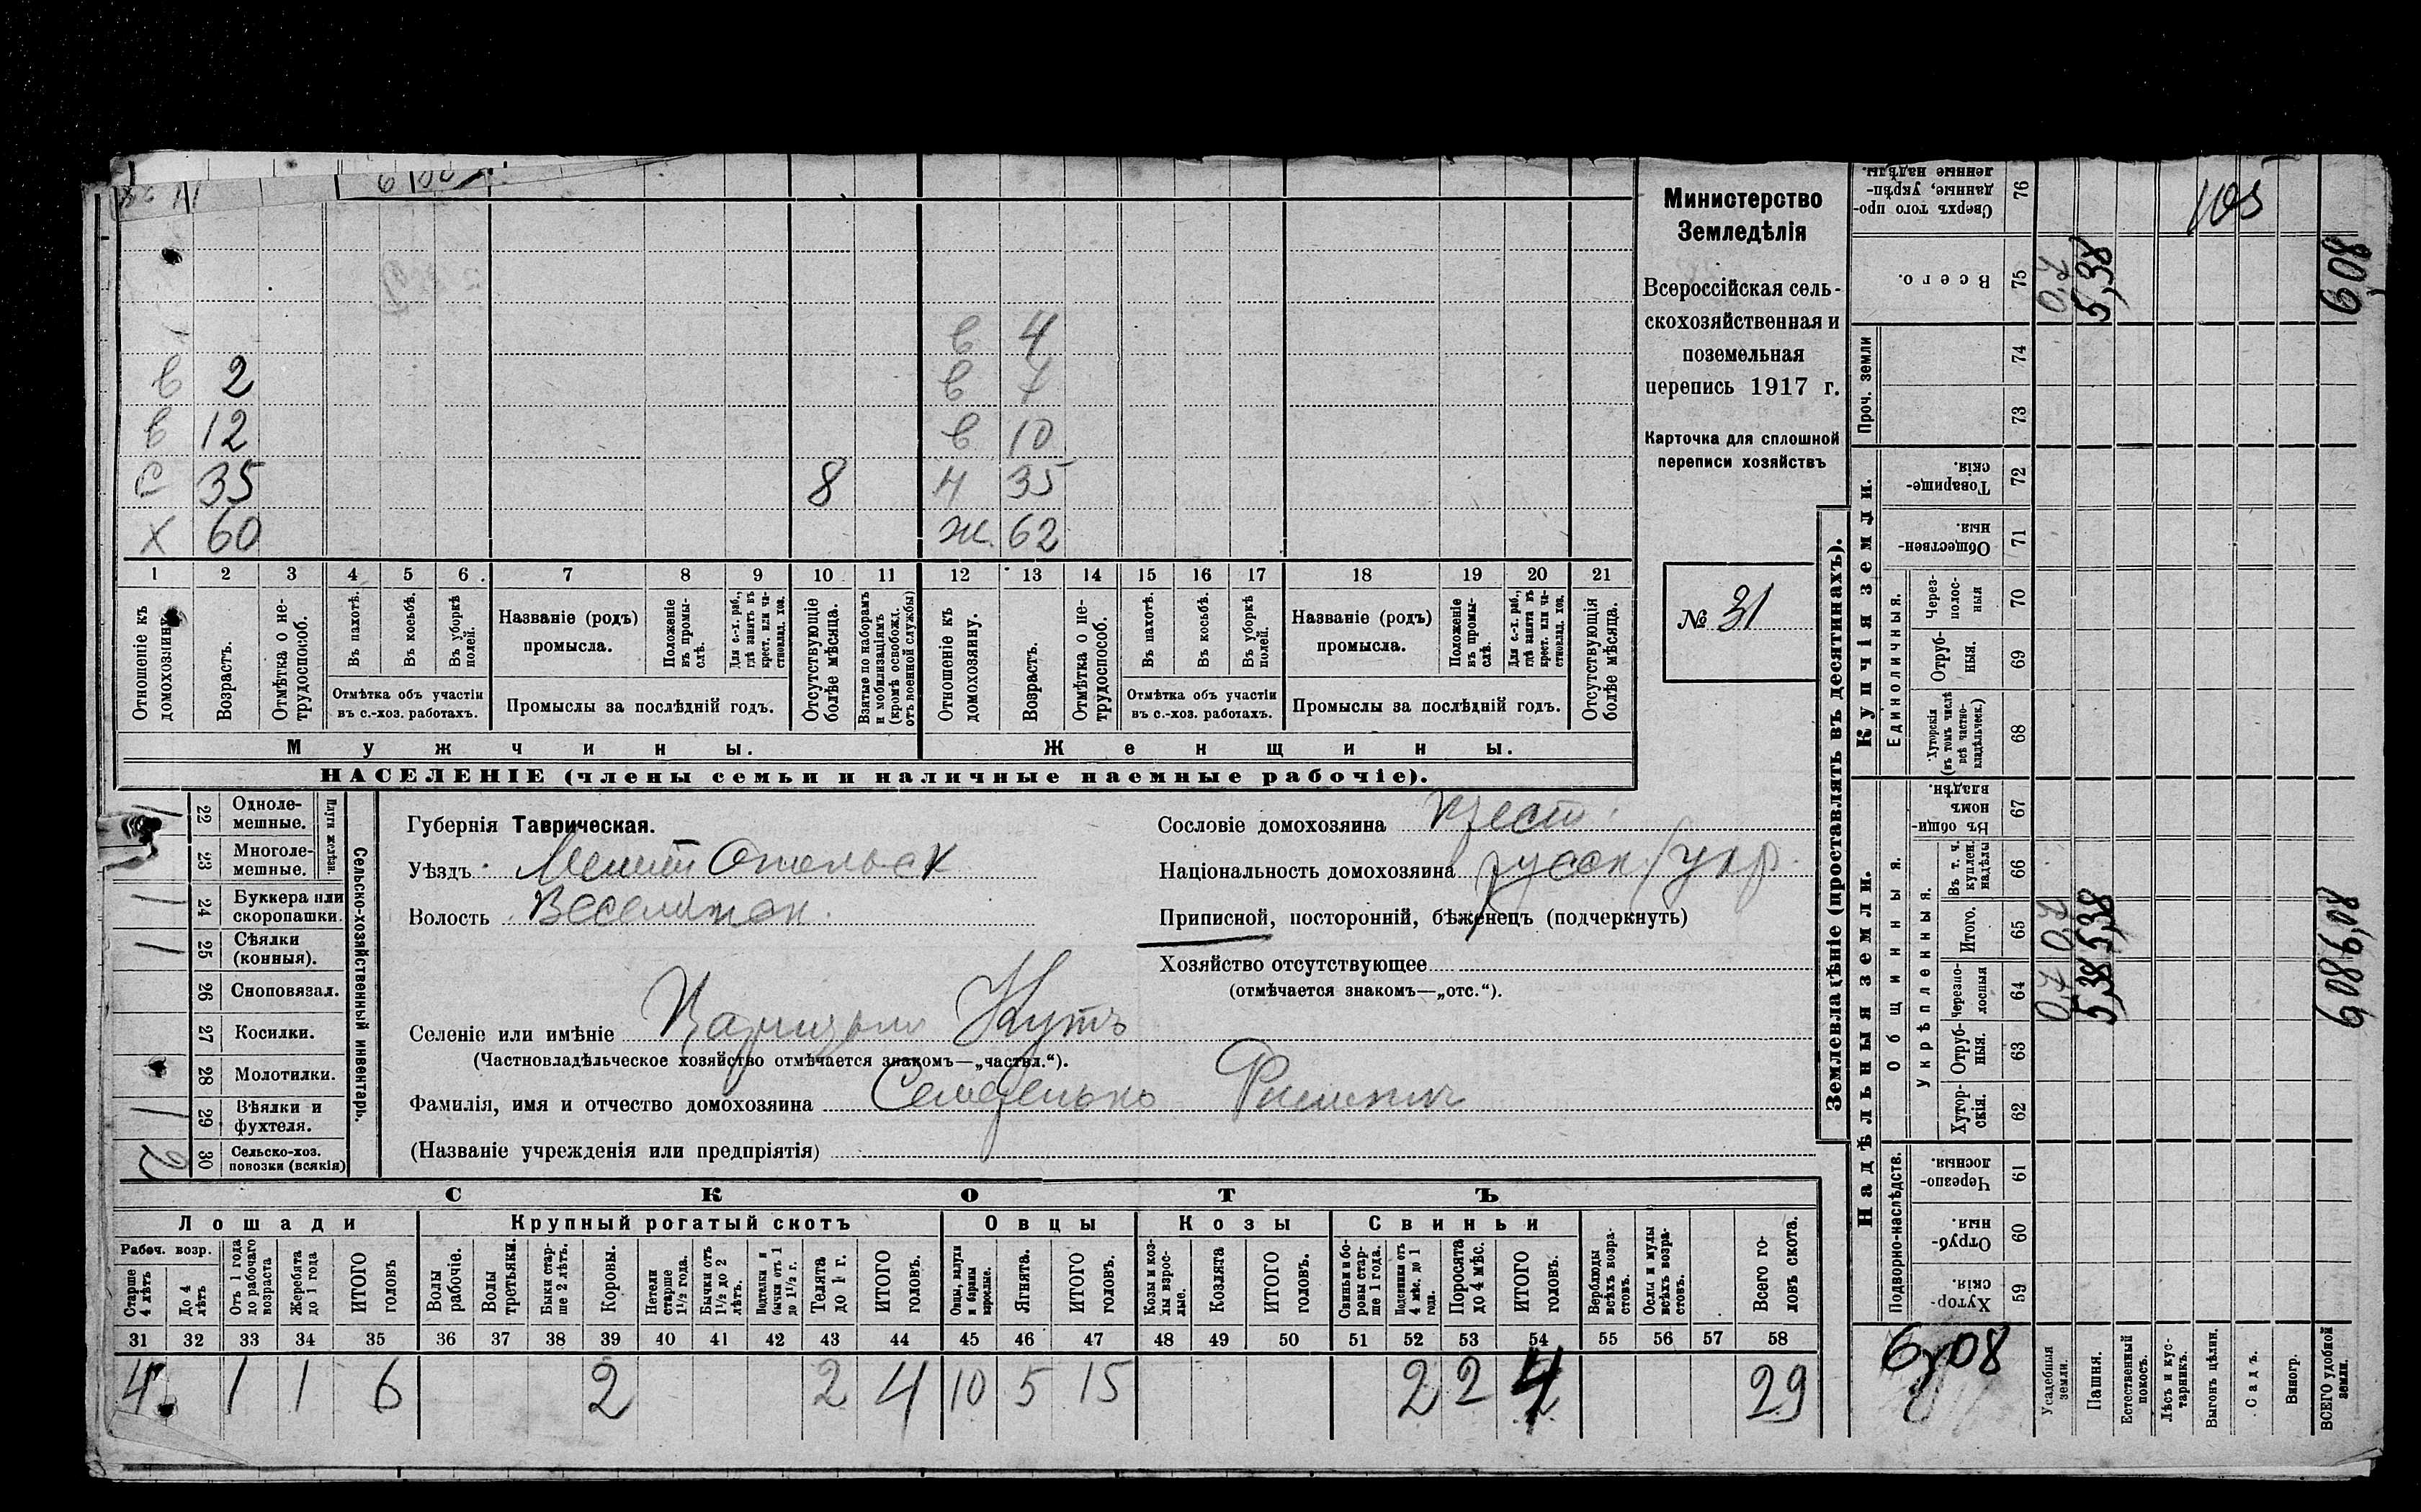 6,00
в 4
в 2 в 7
в 12 в 10
с 35 8 н 35
х 60 ж. 62
1 2 3 4 5 6 7 8 9 10 11 12 13 14 15 16 17 18 19 20 21
Отношеніе къ домохозяину.
Возрастъ.
Отмѣтка о не-трудоспособ.
Въ пахотѣ.
Въ косьбѣ.
Въ уборкѣ полей.
Отмѣтка объ участіи
въ с.-хоз. работахъ.
Названіе (родъ)
промысла.
Положеніе въ промы-слѣ.
Для с.-х. раб., гдѣ занятъ въ крест. или ча-стновлад. хоз.
Промыслы за послѣдній годъ.
Отсутствующіе болѣе мѣсяца.
Взятые по наборамъ и мобилизаціямъ (кромѣ освобожд. отъ военной службы)
Отношеніе къ домохозяину.
Возрастъ.
Отмѣтка о не-трудоспособ.
Въ пахотѣ.
Въ косьбѣ.
Въ уборкѣ полей.
Отмѣтка объ участіи
въ с.-хоз. работахъ.
Названіе (родъ)
промысла.
Положеніе въ промы-слѣ.
Для с.-х. раб., гдѣ занята въ крест. или ча-стновлад. хоз.
Промыслы за послѣдній годъ.
Отсутствующія болѣе мѣсяца.
Мужчины. Женщины.
НАСЕЛЕНІЕ (члены семьи и наличные наемные рабочіе).
Министерство
Земледѣлія
Всероссійская сель-
скохозяйственная и
поземельная
перепись 1917 г.
Карточка для сплошной
переписи хозяйствъ
№ 31
Сельско-хозяйственный инвентарь.
Плуги желѣзн.
1 22 Одноле-мешные.
23 Многоле-мешные.
1 24 Буккера или скоропашки.
1 25 Сѣялки (конныя).
26 Сноповязал.
27 Косилки.
28 Молотилки.
1 29 Вѣялки и фухтеля.
2 30 Сельско-хоз. повозки (всякія)
Губернія Таврическая.
Уѣздъ Мелитопольск
Волость Веселянск.
Сословіе домохозяина крест.
Національность домохозяина русск./укр.
Приписной, посторонній, бѣженецъ (подчеркнуть)
Хозяйство отсутствующее
(отмѣчается знакомъ—„отс.“).
Селеніе или имѣніе Царицынъ Кутъ
(Частновладѣльческое хозяйство отмѣчается знакомъ—„частвл.“).
Фамилія, имя и отчество домохозяина Семеренько Филиппъ
(Названіе учрежденія или предпріятія)
СКОТЪ
Лошади Крупный рогатый скотъ Овцы Козы Свиньи
Рабоч. возр.
Старше 4 лѣтъ
До 4 лѣтъ
Отъ 1 года до рабочаго возраста
Жеребята до 1 года
ИТОГО головъ
Волы рабочіе.
Волы третьяки.
Быки стар-ше 2 лѣтъ.
Коровы.
Нетели старше 1½ года.
Бычки отъ 1½ до 2 лѣтъ.
Подтелки и бычки отъ 1 до 1½ г.
Телята до 1 г.
ИТОГО головъ.
Овцы, валухи и бараны взрослые.
Ягнята.
ИТОГО головъ.
Козы и коз-лы взрос-лые.
Козлята
ИТОГО головъ.
Свиньи и бо-ровы стар-ше 1 года.
Подсвинки отъ 4 мѣс. до 1 года.
Поросята до 4 мѣс.
ИТОГО головъ.
Верблюды всѣхъ возра-стовъ.
Ослы и мулы всѣхъ возра-стовъ.
Всего го-ловъ скота.
31 32 33 34 35 36 37 38 39 40 41 42 43 44 45 46 47 48 49 50 51 52 53 54 55 56 57 58
4 1 1 6 2 2 4 10 5 15 2 2 4 29
Землевладѣніе (проставлять въ десятинахъ).
Надѣльныя земли. Купчія земли.
Подворно-наслѣдств.
Общинныя.
Укрѣпленныя.
Единоличныя.
Проч. земли
Хутор-скія. 59
Отруб-ныя. 60
Черезпо-лосныя. 61
Хутор-скія. 62
Отруб-ныя. 63
Черезпо-лосныя 64
Итого. 65
Въ т. ч. куплен. надѣлы 66
Въ общин-номъ владѣн. 67
Хуторскія (въ томъ числѣ всѣ частно-владѣльческ.) 68
Отруб-ныя. 69
Через-полос-ныя 70
Обществен-ныя. 71
Товарище-скія. 72
73
74
Всего. 75
Сверхъ того про-данные, укрѣп-ленные надѣлы. 76
6,08
Усадебныя земли. 0,70 0,70 0,70
Пашня. 5,38 5,38 5,38
Естественный покосъ.
Лѣсъ и кус-тарникъ.
Выгонъ цѣлин. 105
Садъ.
Виногр.
ВСЕГО удобной земли. 6,08 6,08 6,08